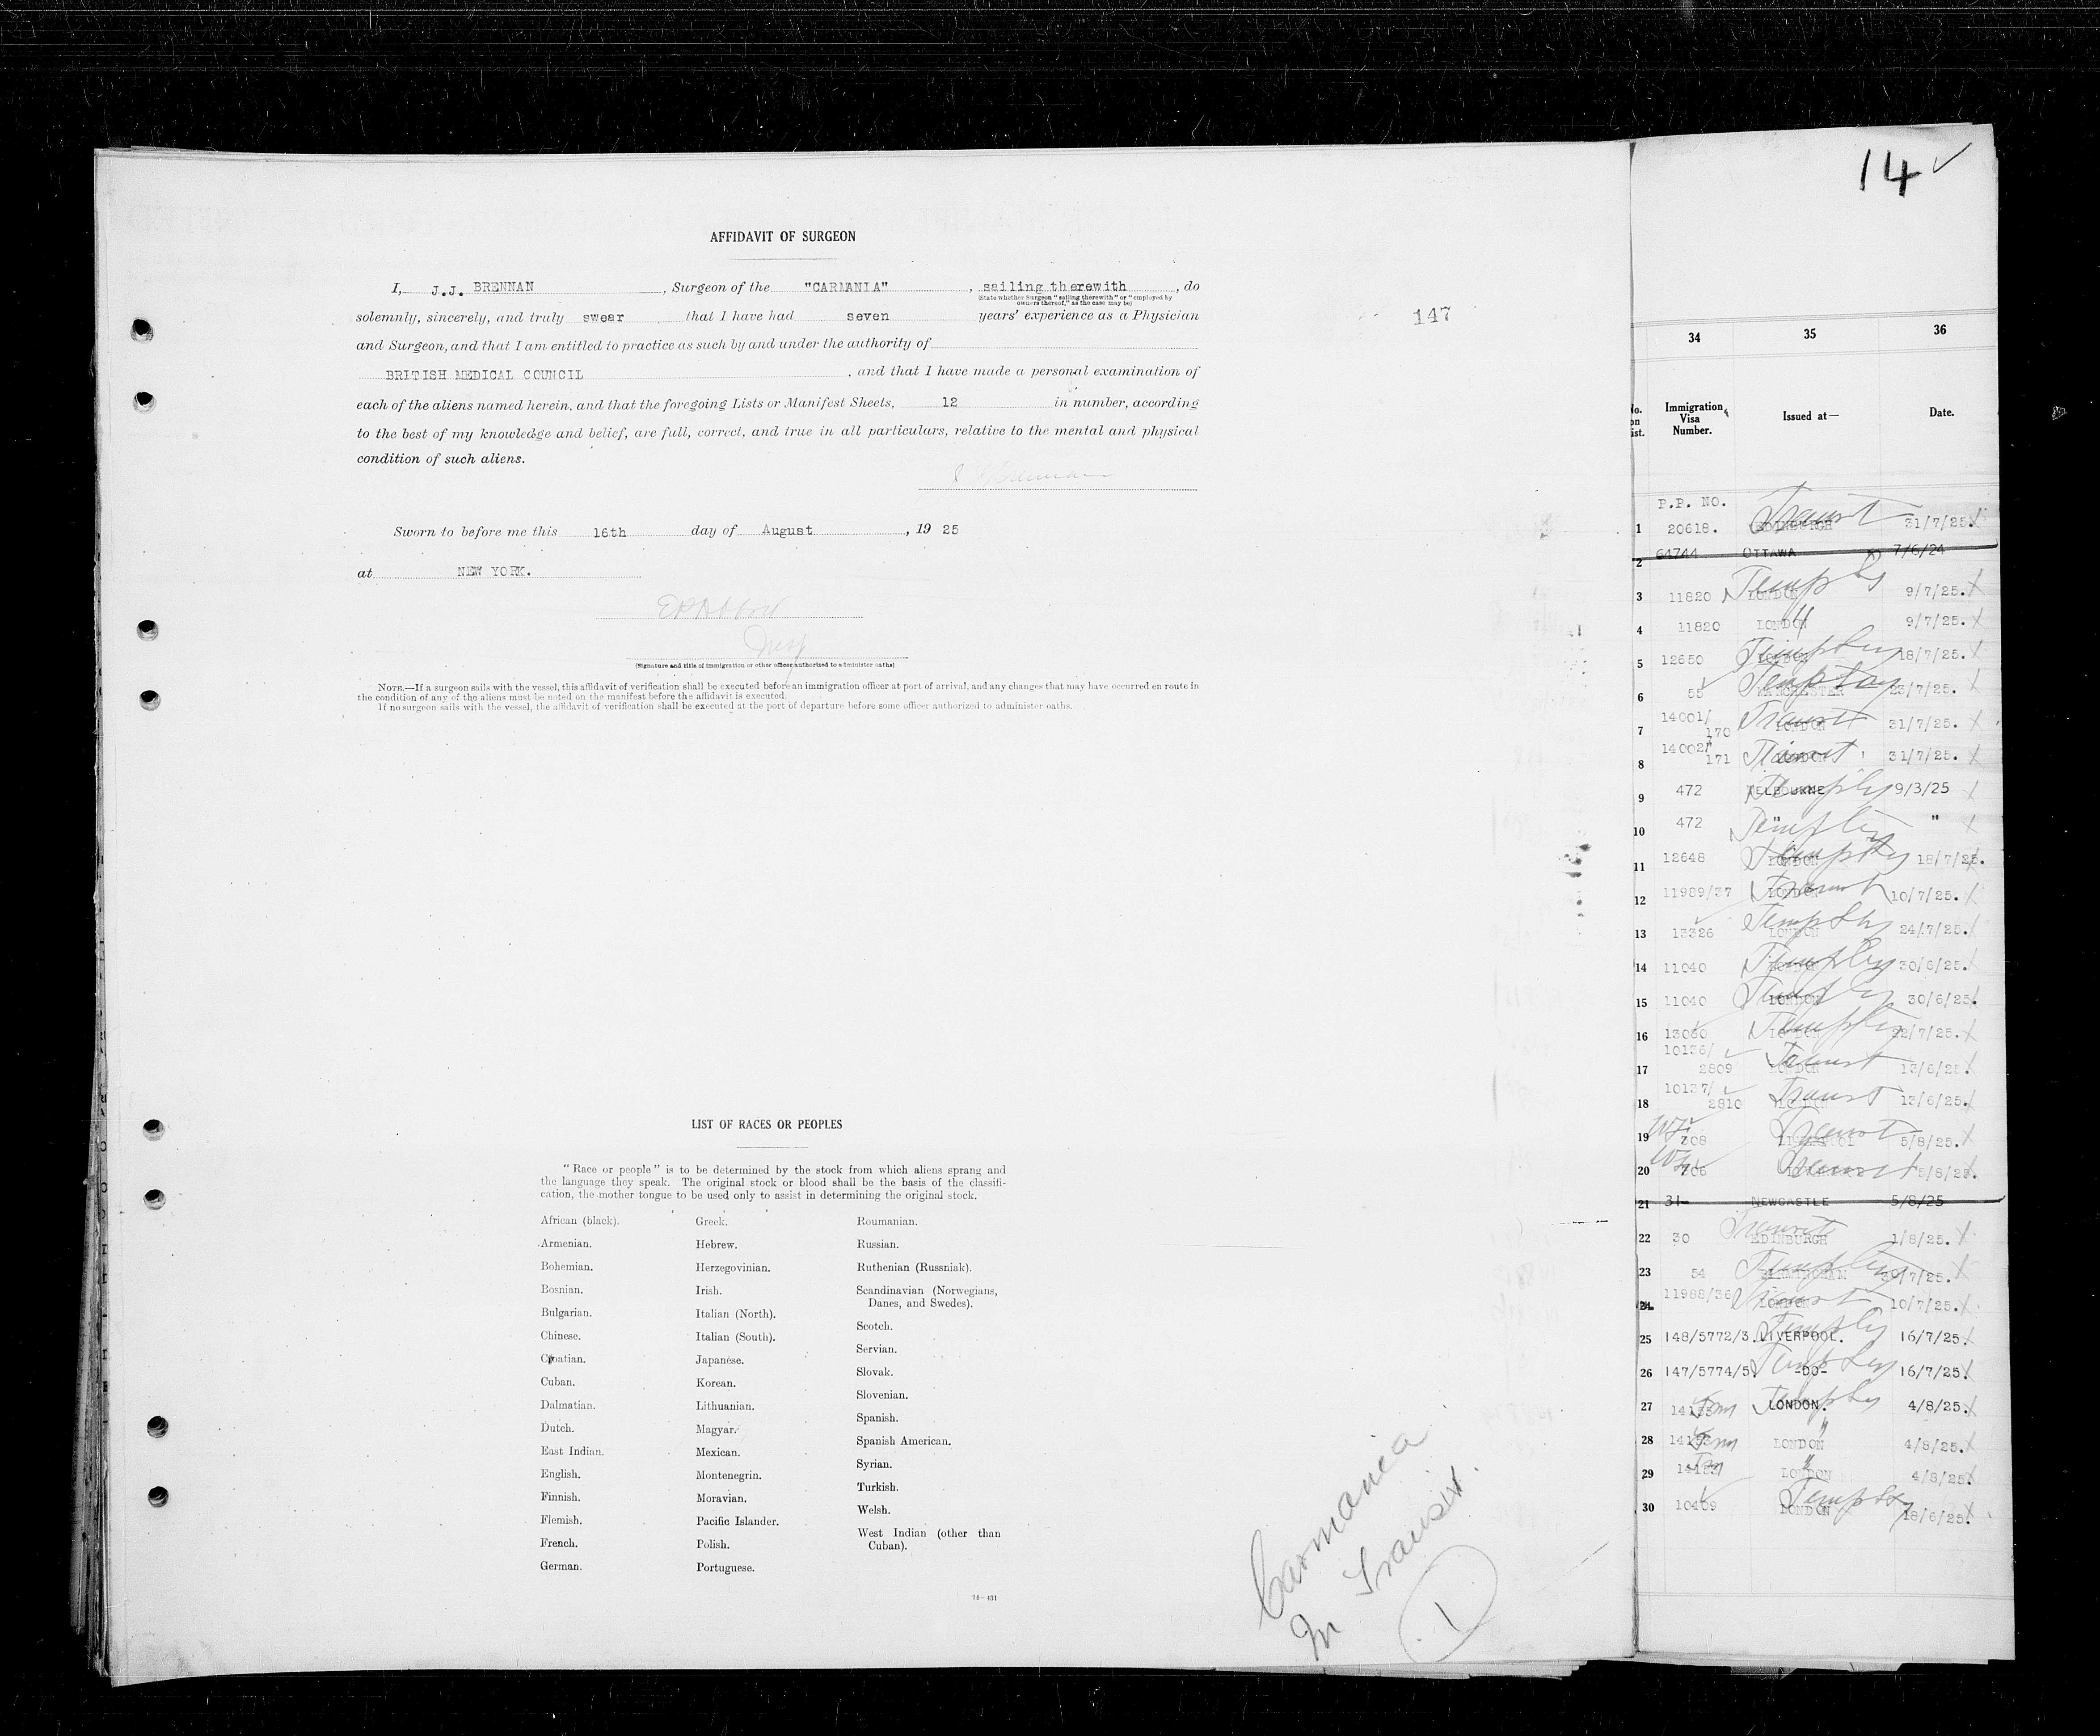 AFFIDAVIT OF SURGEON
I, J.J. BRENNAN , Surgeon of the "CARMANIA" , sailing therewith , do
(State whether Surgeon "sailing therewith" or "employed by
owners thereof," as the case may be)
solemnly, sincerely, and truly swear that I have had seven years' experience as a Physician
and Surgeon, and that I am entitled to practice as such by and under the authority of
BRITISH MEDICAL COUNCIL , and that I have made a personal examination of
each of the aliens named herein, and that the foregoing Lists or Manifest Sheets, 12 in number, according
to the best of my knowledge and belief, are full, correct, and true in all particulars, relative to the mental and physical
condition of such aliens.
J J Brennan
Sworn to before me this 16th day of August , 19 25
at NEW YORK.
(Signature and title of immigration or other officer authorized to administer oaths)
NOTE.—If a surgeon sails with the vessel, this affidavit of verification shall be executed before an immigration officer at port of arrival, and any changes that may have occurred en route in
the condition of any of the aliens must be noted on the manifest before the affidavit is executed.
If no surgeon sails with the vessel, the affidavit of verification shall be executed at the port of departure before some officer authorized to administer oaths.
147
LIST OF RACES OR PEOPLES
"Race or people" is to be determined by the stock from which aliens sprang and
the language they speak. The original stock or blood shall be the basis of the classifi-
cation, the mother tongue to be used only to assist in determining the original stock.
African (black).
Armenian.
Bohemian.
Bosnian.
Bulgarian.
Chinese.
Croatian.
Cuban.
Dalmatian.
Dutch.
East Indian.
English.
Finnish.
Flemish.
French.
German.
Greek.
Hebrew.
Herzegovinian.
Irish.
Italian (North).
Italian (South).
Japanese.
Korean.
Lithuanian.
Magyar.
Mexican.
Montenegrin.
Moravian.
Pacific Islander.
Polish.
Portuguese.
Roumanian.
Russian.
Ruthenian (Russniak).
Scandinavian (Norwegians,
Danes, and Swedes).
Scotch.
Servian.
Slovak.
Slovenian.
Spanish.
Spanish American.
Syrian.
Turkish.
Welsh.
West Indian (other than
Cuban).
14—431
Carmania
In Transit.
1
14
34 35 36
No. on list. Immigration Visa Number. Issued at— Date.
P.P. NO.
1 20618. EDINBURGH Transit 31/7/25.
2 64744 OTTAWA 7/6/24
3 11820 LONDON Temply 9/7/25.
4 11820 LONDON " 9/7/25.
5 12650 LONDON Temply 18/7/25.
6 55 MANCHESTER Temply 23/7/25.
7 14001/170 LONDON Transit 31/7/25.
8 14002/171 LONDON Transit 31/7/25.
9 472 MELBOURNE Temply 9/3/25
10 472 " Temply "
11 12648 LONDON Temply 18/7/25.
12 11989/37 LONDON Transit 10/7/25.
13 13326 LONDON Temply 24/7/25.
14 11040 LONDON Temply 30/6/25.
15 11040 LONDON Temply 30/6/25.
16 13080 LONDON Temply 22/7/25.
17 10136/2809 LONDON Transit 13/6/25.
18 10137/2810 LONDON Transit 13/6/25.
19 708 LIVERPOOL Transit 5/8/25.
20 706 Transit 5/8/25.
21 31- NEWCASTLE 5/8/25
22 30 EDINBURGH Transit 1/8/25.
23 54 BIRMINGHAM Temply 30/7/25.
24 11988/36 LONDON Transit 10/7/25.
25 148/5772/3. LIVERPOOL. Temply 16/7/25.
26 147/5774/5. -DO- Temply 16/7/25.
27 LONDON. Temply 4/8/25.
28 LONDON " 4/8/25.
29 LONDON " 4/8/25.
30 10409 LONDON Temply 18/6/25.